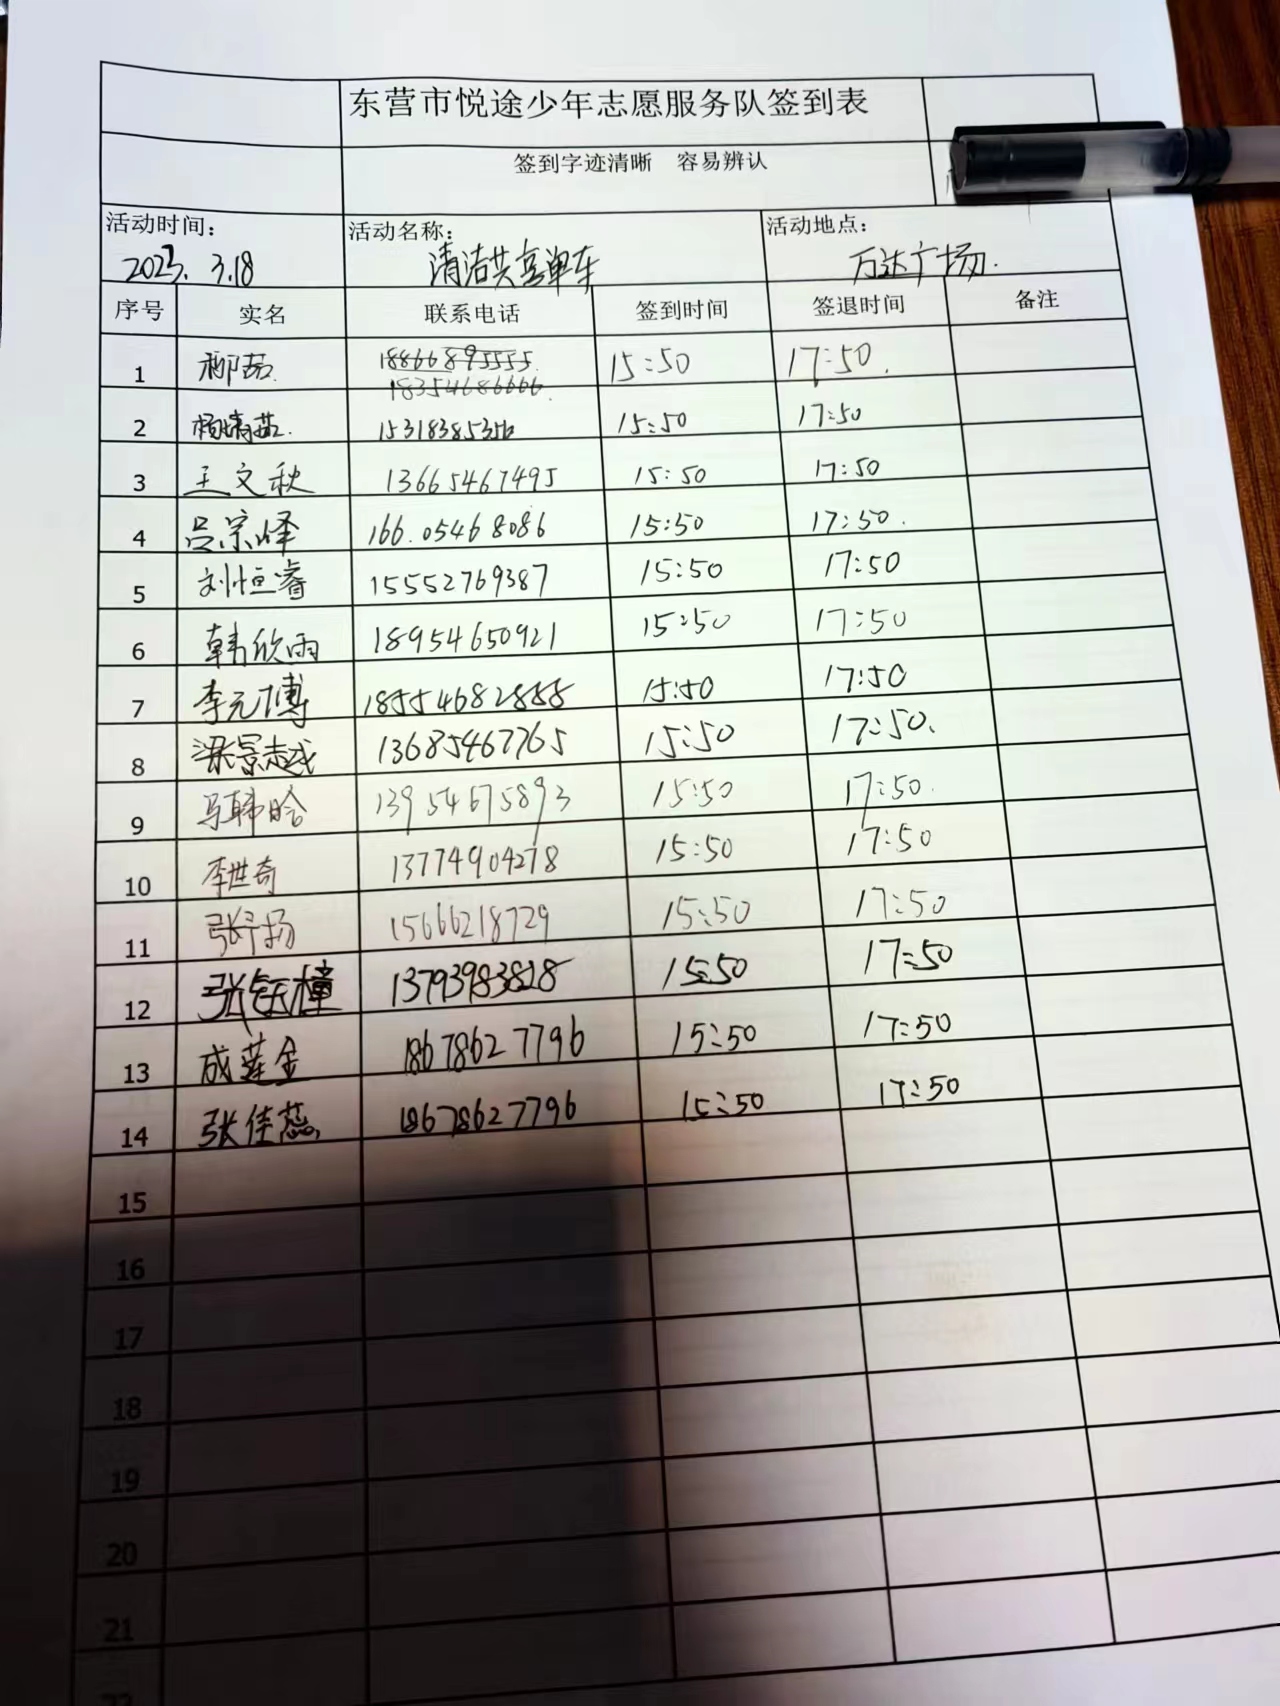 东营市悦途少年志愿服务队签到表
签到字迹清晰 容易辨认
活动时间： 活动名称： 活动地点：
2023. 3.18 清洁共享单车 万达广场.
序号 实名 联系电话 签到时间 签退时间 备注
1 柳茹 18866895555 15:50 17:50.
18354686666.
2 杨婧茹. 15318385356 15:50 17:50
3 王文秋 13665467495 15:50 17:50
4 吕宗烽 166.05468086 15:50 17:50.
5 刘恒睿 15552769387 15:50 17:50
6 韩欣雨 18954650921 15:50 17:50
7 李元博 18554682858 15:50 17:50
8 梁景越 13685467765 15:50 17:50.
9 马韩晗 13954675893 15:50 17:50.
10 李世奇 13774904278 15:50 17:50
11 张予扬 15666218729 15:50 17:50
12 张钰橦 13793983828 15:50 17:50
13 成莲金 18678627796 15:50 17:50
14 张佳蕊 18678627796 15:50 17:50
15
16
17
18
19
20
21